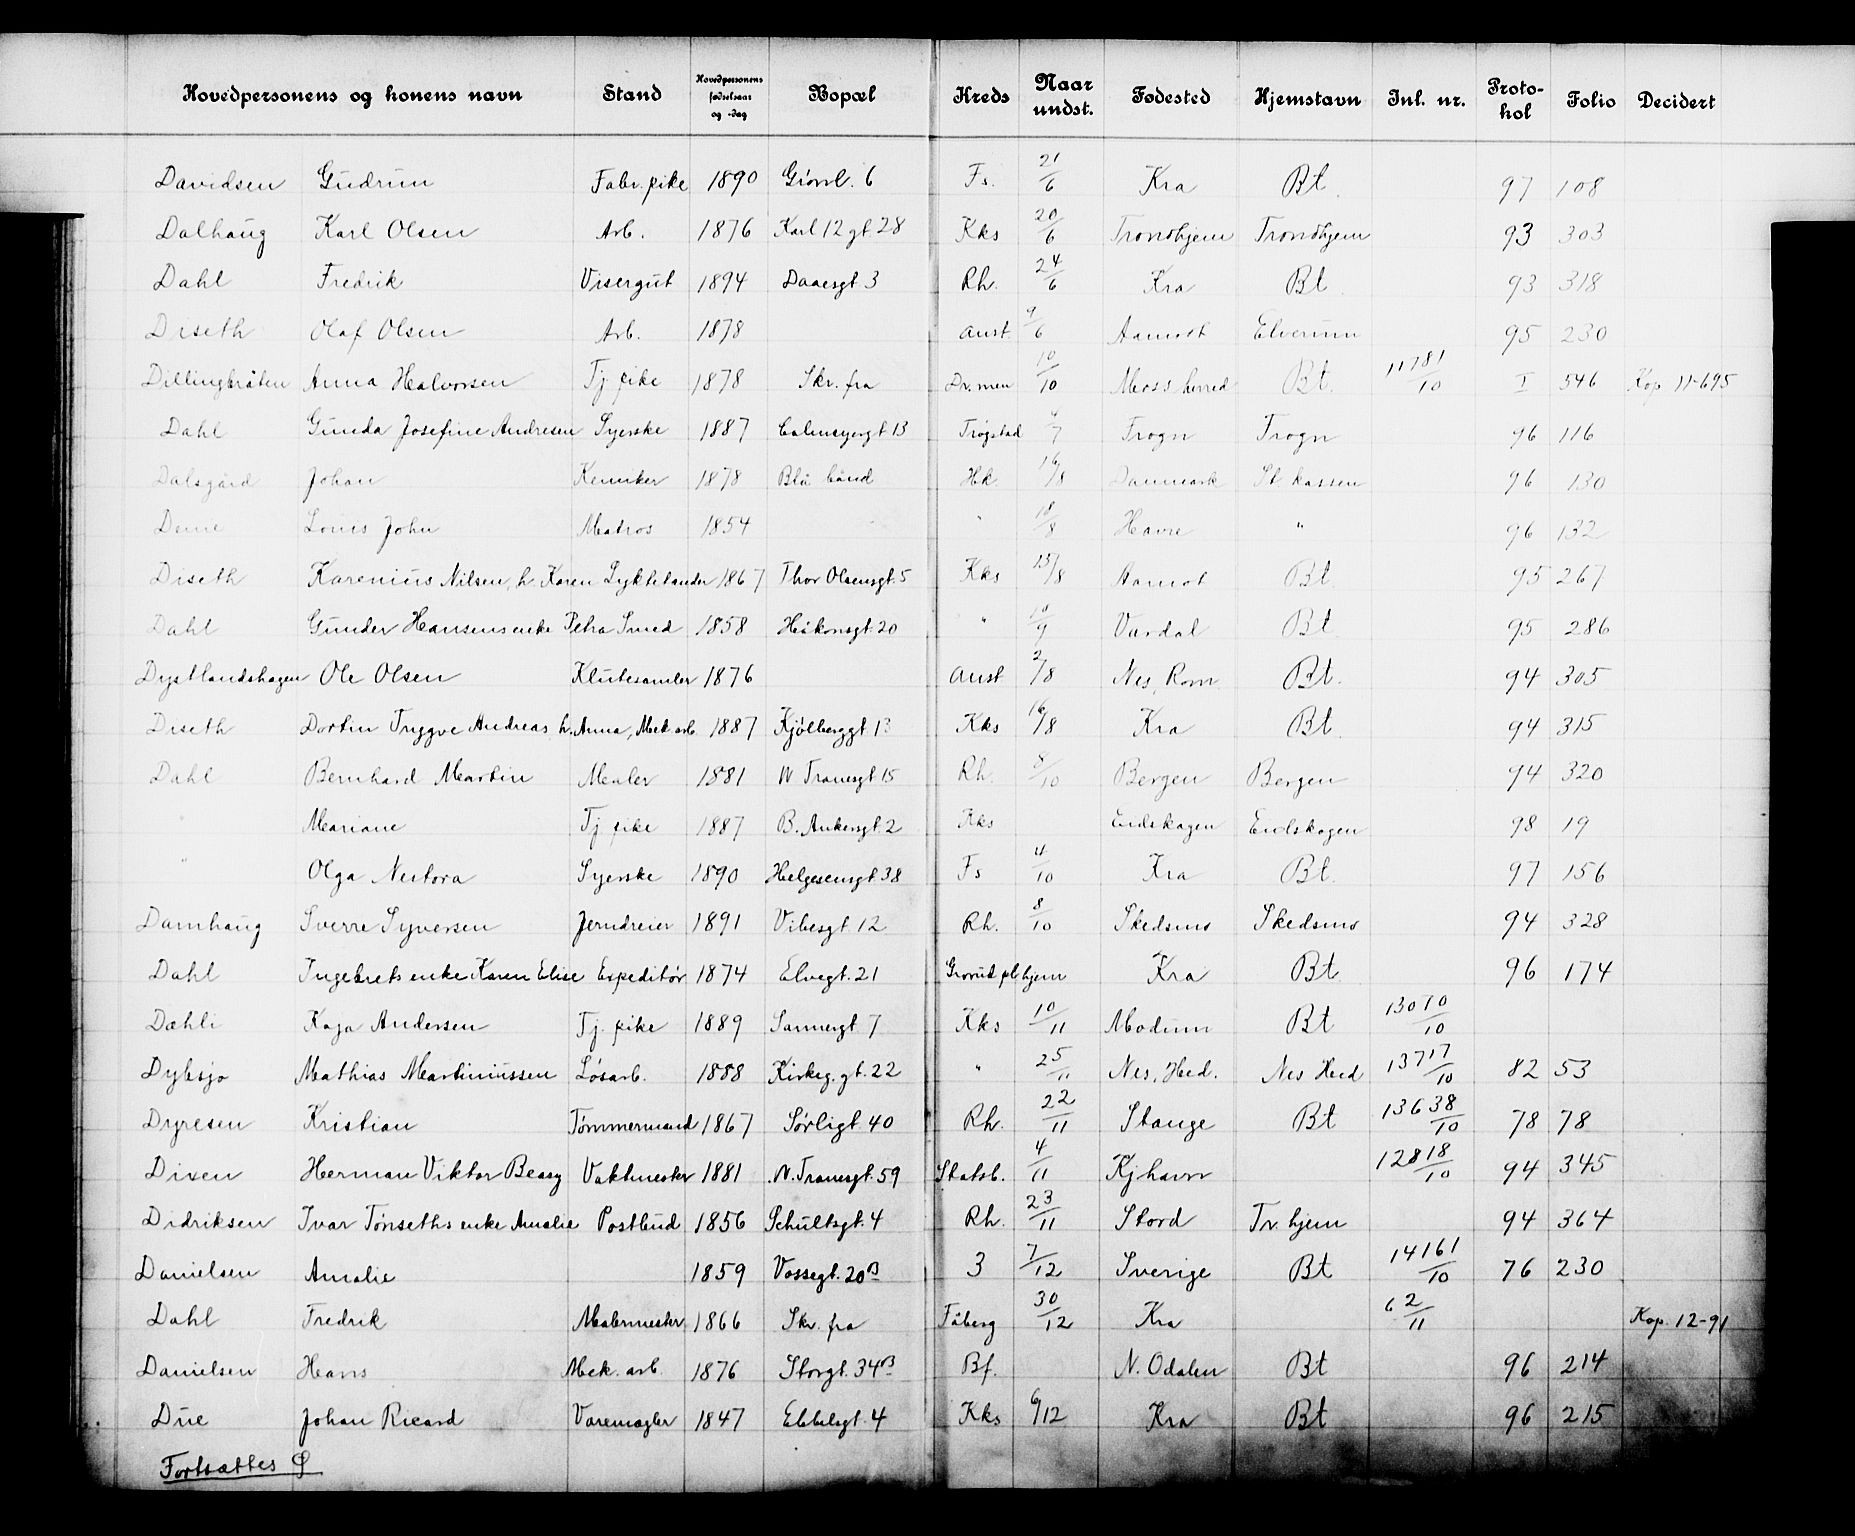 Hovedpersonens og konens navn Stand Hovedpersonens fødselsaar og -dag Bopæl Kreds Naar undst. Fødested Hjemstavn Inl. nr. Protokol Folio Decidert
Davidsen Gudrun Fabr. pike 1890 Grønl. 6 Fs. 21/6 Kra Bt 97 108
Dalhaug Karl Olsen Arb. 1876 Karl 12 gt 28 Kks 20/6 Trondhjem Trondhjem 93 303
Dahl Fredrik Visergut 1894 Daaesgt 3 Rh. 24/6 Kra Bt 93 318
Diseth Olaf Olsen Arb. 1878 Aust. 9/6 Aamot Elverum 95 230
Dillingbråten Anna Halvorsen Tj. pike 1878 Skr. fra Dr.men 10/10 Moss herred Bt. 11781/10 I 546 Kop 11-695
Dahl Gunda Josefine Andresen Syerske 1887 Calmeyersgt 13 Trøgstad /7 Frogn Frogn 96 116
Dalsgård Johan Kemiker 1878 Blå bånd Hk. 16/8 Danmark St kassen 96 130
Louis John Matros 1854 " 18/8 Havre " 96 132
Diseth Karenius Nilsen, h. Karen Lyktetander 1867 Thor Olsensgt. 5 Kks 15/8 Aamot Bt. 95 267
Dahl Gunder Hansens enke Petra Smed 1858 Håkonsgt. 20 " 10/9 Vardal Bt 95 286
Dystlandshagen Ole Olsen Klutesamler 1876 Aust 2/8 Nes, Rom. Bt. 94 305
Diseth Dortin Trygve Andreas h. Anna, Mek arb. 1887 Kjølberggt 13 Kks 16/8 Kra Bt 94 315
Dahl Bernhard Martin Maler 1881 N Tranesgt 15 Rh. 8/10 Bergen Bergen 94 320
Mariane Tj pike 1887 B. Ankersgt. 2 Kks Eidskogen Eidskogen 98 19
" Olga Nestora Syerske 1890 Helgesensgt. 38 Fs 4/10 Kra Bt. 97 156
Damhaug Sverre Syversen Jerndreier 1891 Vibesgt. 12 Rh. 8/10 Skedsmo Skedsmo 94 328
Dahl Ingebrets enke Karen Elise Expeditør 1874 Elvegt. 21 Grorud plhjem Kra Bt 96 174
Dæhli Kaja Andersen Tj. pike 1889 Sannergt. 7 Kks 10/11 Modum Bt 13070/10
Dybsjø Mathias Martiniussen Løsarb. 1888 Kirkeg. gt. 22 " 25/11 Nes, Hed. Nes Hed 13717/10 82 53
Dyresen Kristian Tømmermand 1867 Sørligt. 40 Rh. 22/11 Stange Bt 13638/10 78 78
Dixen Herman Viktor Beasy Vaktmester 1881 N. Tranesgt. 59 Statsb. 4/11 Kjhavn 12818/10 94 345
Didriksen Ivar Tønseths enke Amalie Postbud 1856 Schultsgt. 4 Rh. 23/11 Stord Tr. hjem 94 364
Danielsen Amalie 1859 Vossegt. 20B 3 7/12 Sverige Bt 14161/10 76 230
Dahl Fredrik Malermester 1866 Skr. fra Fåberg 30/12 Kra 62/11 Kop. 12-91
Danielsen Hans Mek. arb. 1876 Storgt. 34B Bf. N. Odalen Bt 96 214
Due Johan Ricard Varemægler 1847 Ebbelsgt. 4 Kks 6/12 Kra Bt 96 215
Fortsættes